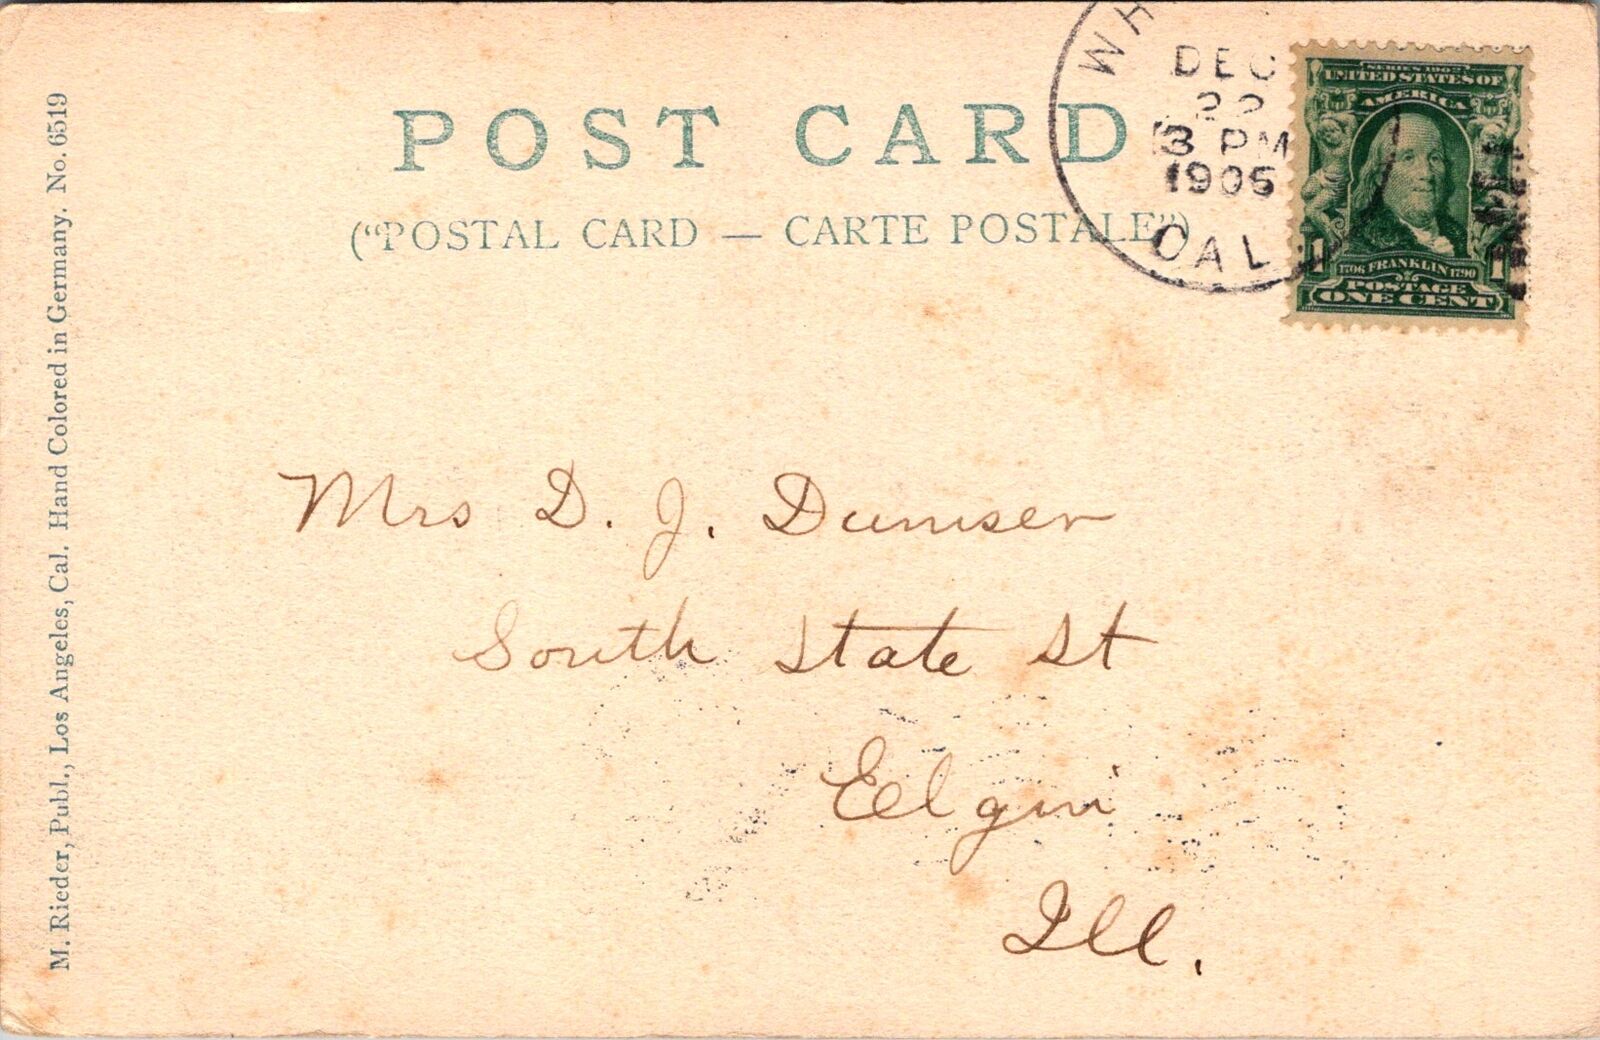 POST CARD
("POSTAL CARD — CARTE POSTALE")
M. Rieder, Publ., Los Angeles, Cal. Hand Colored in Germany. No. 6519
DEC
22
3 PM
1905
CAL
SERIES 1902
UNITED STATES OF
AMERICA
1 1
1706 FRANKLIN 1790
POSTAGE
ONE CENT
Mrs D. J. Dumser
South State St
Elgin
Ill.